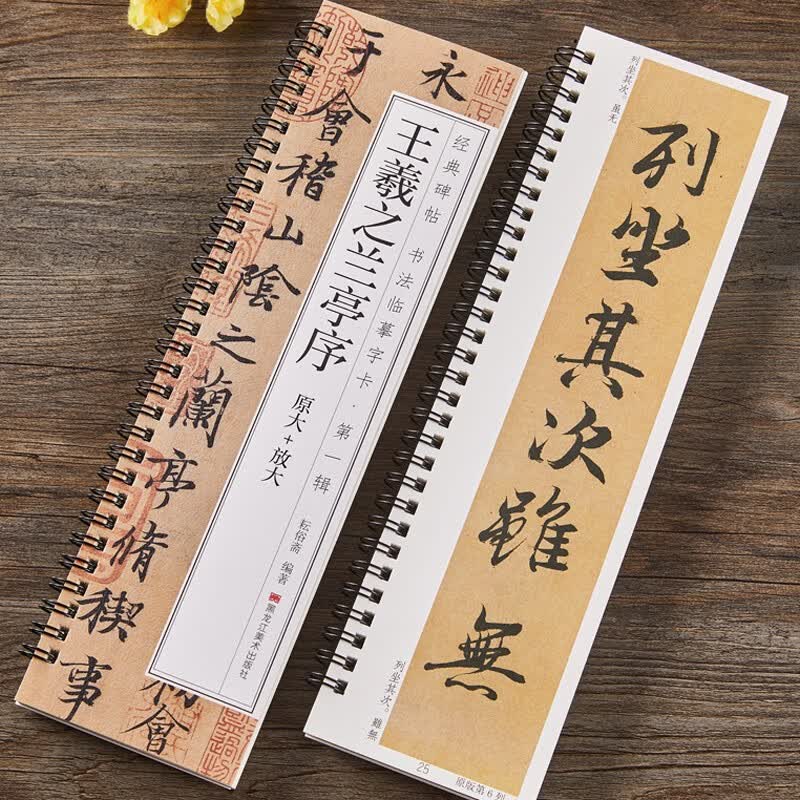 永
會
于會稽山陰之蘭亭脩稧事
经典碑帖 书法临摹字卡·第一辑
王羲之兰亭序
原大+放大
耘俗斋 编著
黑龙江美术出版社
列坐其次。虽无
列坐其次雖無
列坐其次。雖無
25
原版第6列